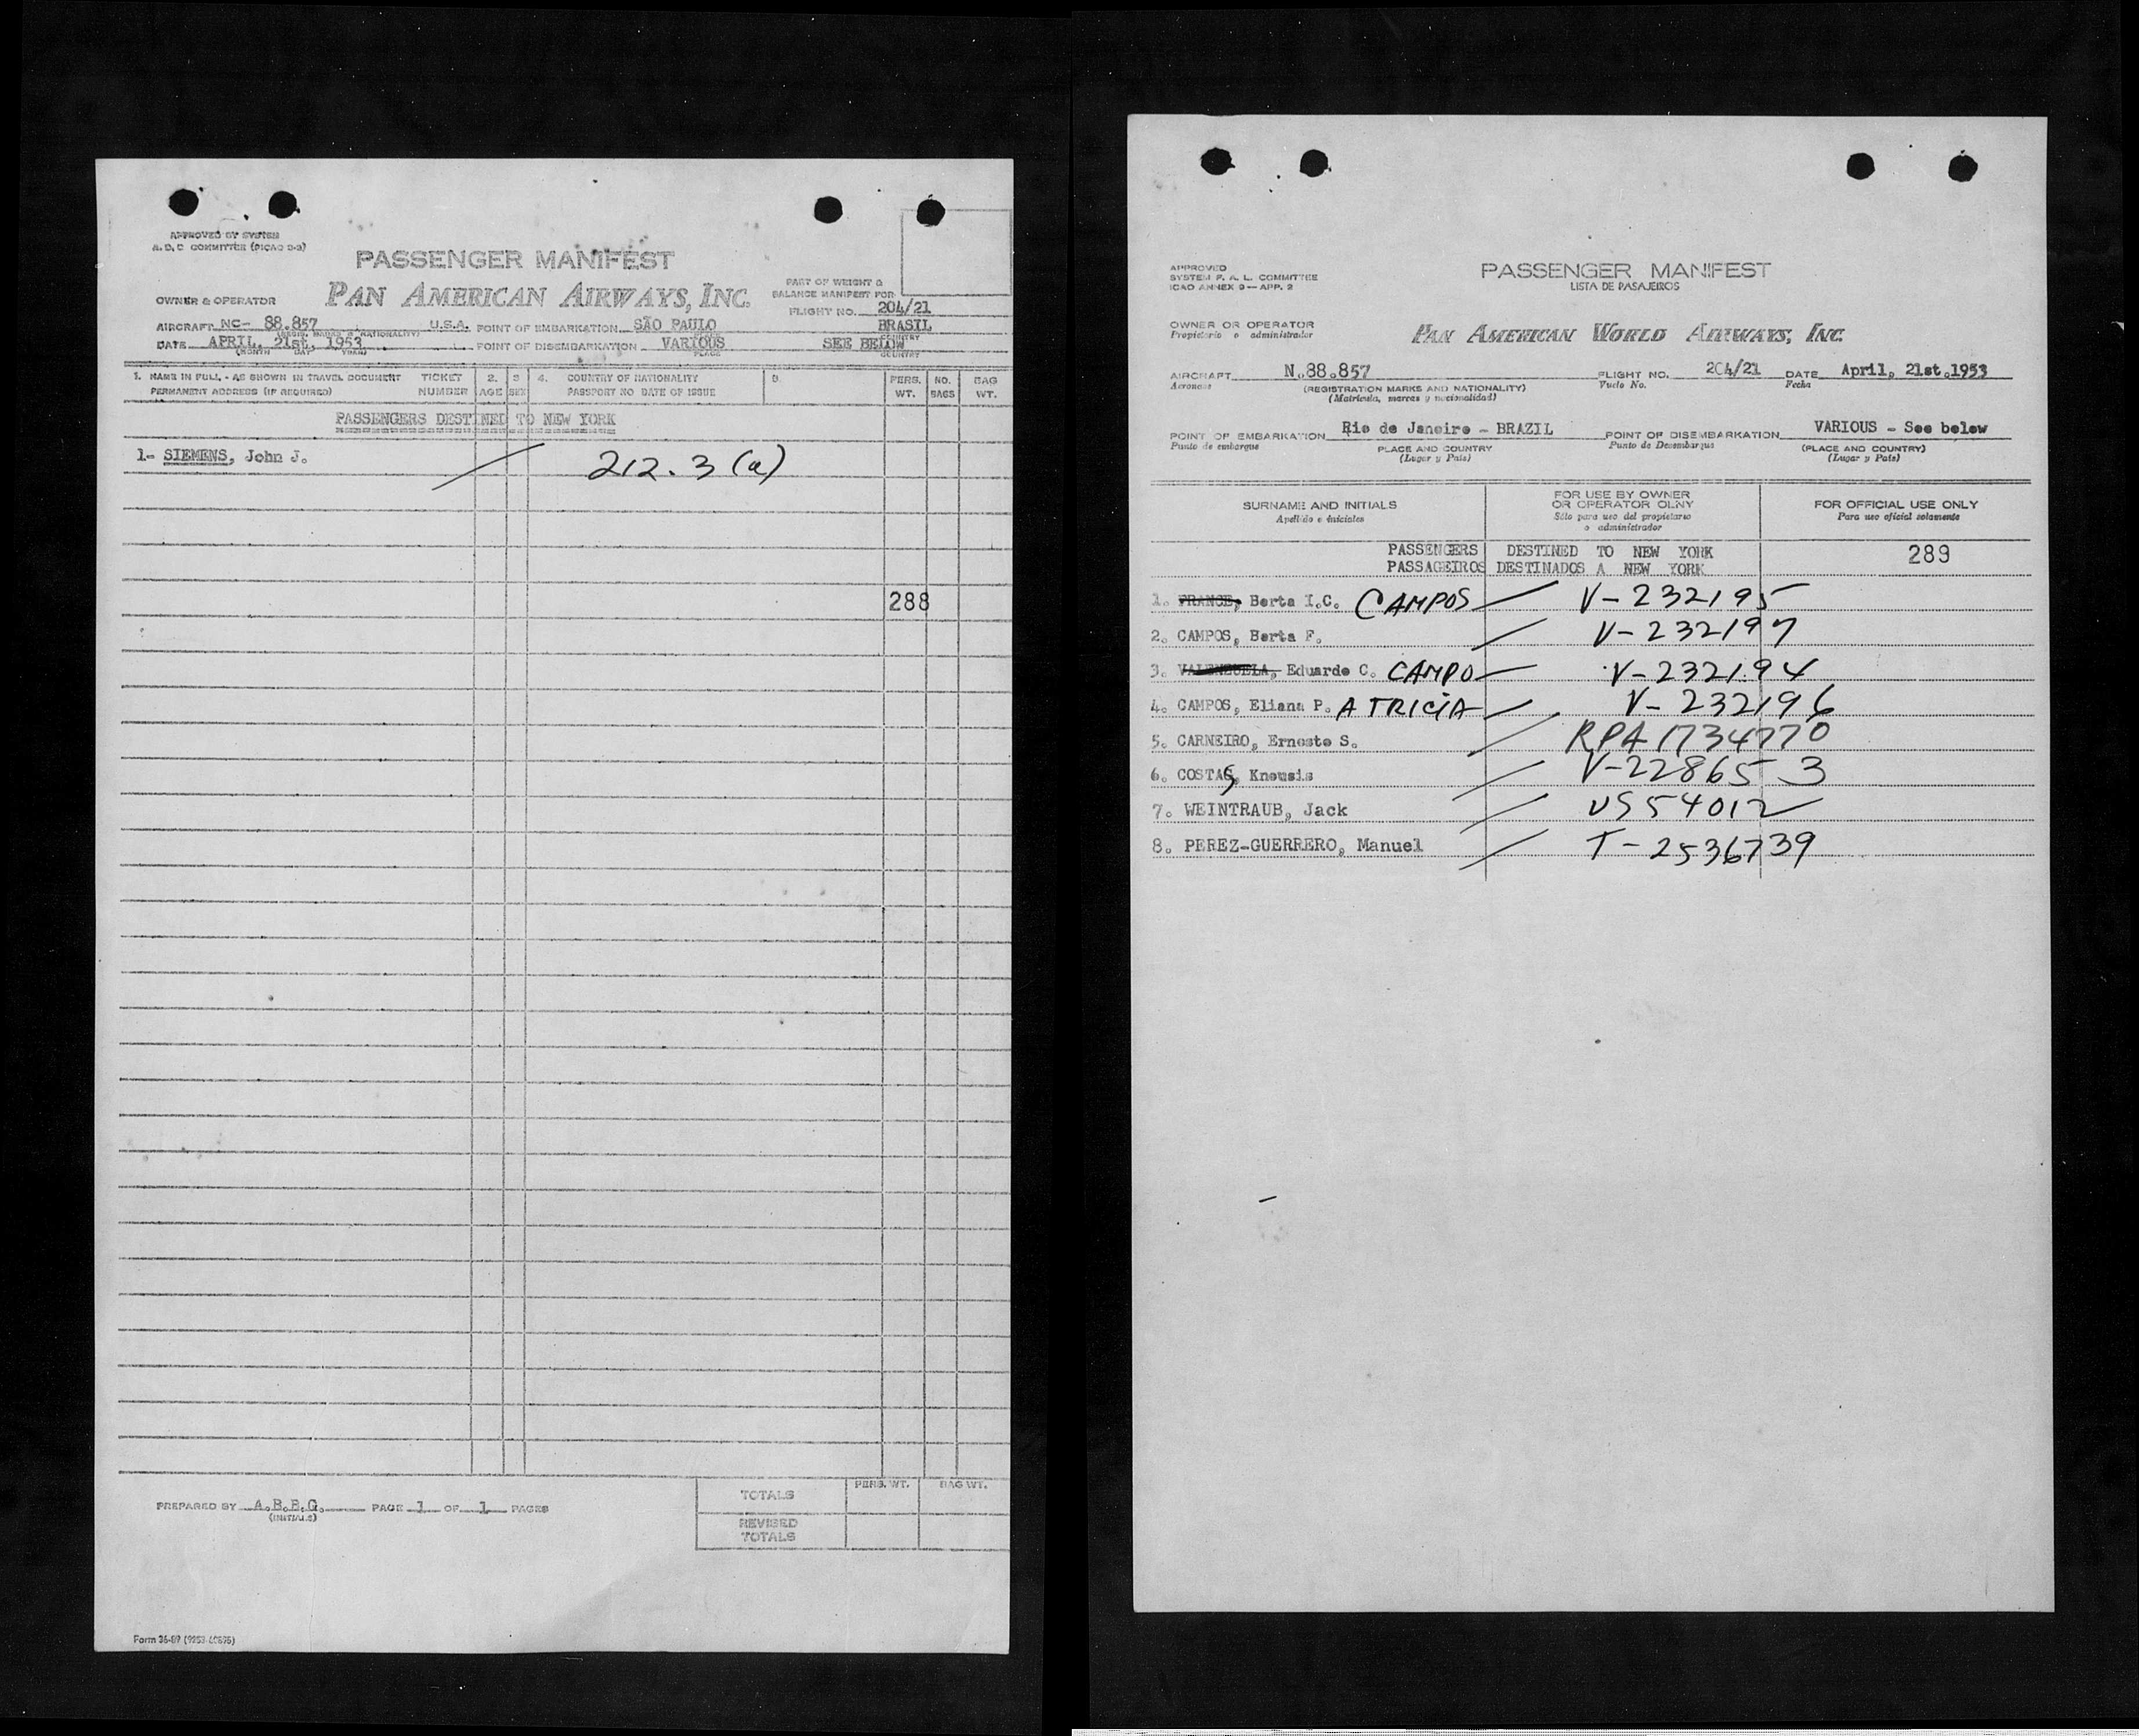 APPROVED BY SYSTEM
A. D. C COMMITTEE (PICAO 3-3)
PASSENGER MANIFEST
PAN AMERICAN AIRWAYS, INC.
PART OF WEIGHT &
BALANCE MANIFEST FOR
OWNER & OPERATOR
FLIGHT NO. 204/21
AIRCRAFT NC- 88.857 U.S.A. POINT OF EMBARKATION SÃO PAULO BRASIL
DATE APRIL, 21st, 1953 POINT OF DISEMBARKATION VARIOUS SEE BELOW
(MONTH DAY YEAR) PLACE COUNTRY
1. NAME IN FULL - AS SHOWN IN TRAVEL DOCUMENT TICKET 2. 3 4. COUNTRY OF NATIONALITY PERS. NO. BAG
PERMANENT ADDRESS (IF REQUIRED) NUMBER AGE SEX PASSPORT NO DATE OF ISSUE WT. BAGS WT.
PASSENGERS DESTINED TO NEW YORK
1- SIEMENS, John J. 212.3(a)
288
PREPARED BY A.B.B.G. PAGE 1 OF 1 PAGES
(INITIALS)
TOTALS PERS. WT. BAG WT.
REVISED
TOTALS
APPROVED
SYSTEM F. A. L. COMMITTEE
ICAO ANNEX 9 — APP. 2
PASSENGER MANIFEST
LISTA DE PASAJEROS
OWNER OR OPERATOR
Propietario o administrador
PAN AMERICAN WORLD AIRWAYS, INC.
AIRCRAFT N.88.857 FLIGHT NO. 204/21 DATE April, 21st.1953
Aeronave (REGISTRATION MARKS AND NATIONALITY) Vuelo No. Fecha
(Matrícula, marcas y nacionalidad)
POINT OF EMBARKATION Rio de Janeiro - BRAZIL POINT OF DISEMBARKATION VARIOUS - See below
Punto de embarque PLACE AND COUNTRY Punto de Desembarque (PLACE AND COUNTRY)
(Lugar y País) (Lugar y País)
SURNAME AND INITIALS
Apellido e iniciales
FOR USE BY OWNER
OR OPERATOR OLNY
Sólo para uso del propietario
o administrador
FOR OFFICIAL USE ONLY
Para uso oficial solamente
PASSENGERS DESTINED TO NEW YORK
PASSAGEIROS DESTINADOS A NEW YORK
289
1. FRANCE, Berta I.C. CAMPOS V-232195
2. CAMPOS, Berta F. V-232197
3. VALENZUELA, Eduardo C. CAMPO V-232194
4. CAMPOS, Eliana P. ATRICIA V-232196
5. CARNEIRO, Ernesto S. RPA 1734770
6. COSTAS, Knousis V-228653
7. WEINTRAUB, Jack US54012
8. PEREZ-GUERRERO, Manuel T-2536739